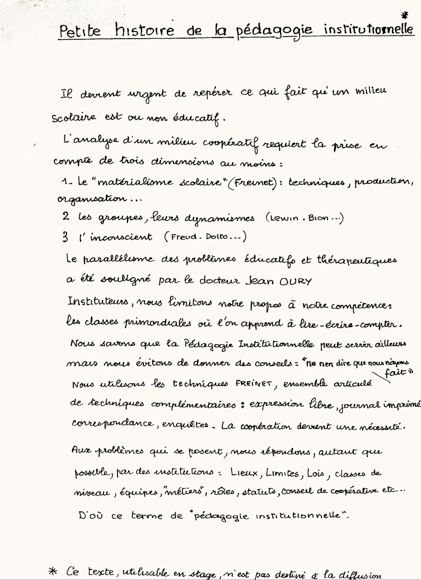 Petite histoire de la pédagogie institutionnelle *
Il devient urgent de repérer ce qui fait qu'un milieu
scolaire est ou non éducatif.
L'analyse d'un milieu coopératif requiert la prise en
compte de trois dimensions au moins :
1. Le "matérialisme scolaire" (Freinet) : techniques, production,
organisation...
2 les groupes, leurs dynamismes (Lewin. Bion...)
3 l'inconscient (Freud. Dolto...)
Le parallélisme des problèmes éducatifs et thérapeutiques
a été souligné par le docteur Jean OURY
Instituteurs, nous limitons notre propos à notre compétence:
les classes primordiales où l'on apprend à lire-écrire-compter.
Nous savons que la Pédagogie Institutionnelle peut servir ailleurs
mais nous évitons de donner des conseils : "ne rien dire que nous n'ayons
fait"
Nous utilisons les techniques FREINET, ensemble articulé
de techniques complémentaires : expression libre, journal imprimé
correspondance, enquêtes. La coopération devient une nécessité.
Aux problèmes qui se posent, nous répondons, autant que
possible, par des institutions : Lieux, Limites, Lois, classes de
niveau, équipes, "métiers", rôles, statuts, conseil de coopérative etc...
D'où ce terme de "pédagogie institutionnelle".
* Ce texte, utilisable en stage, n'est pas destiné à la diffusion